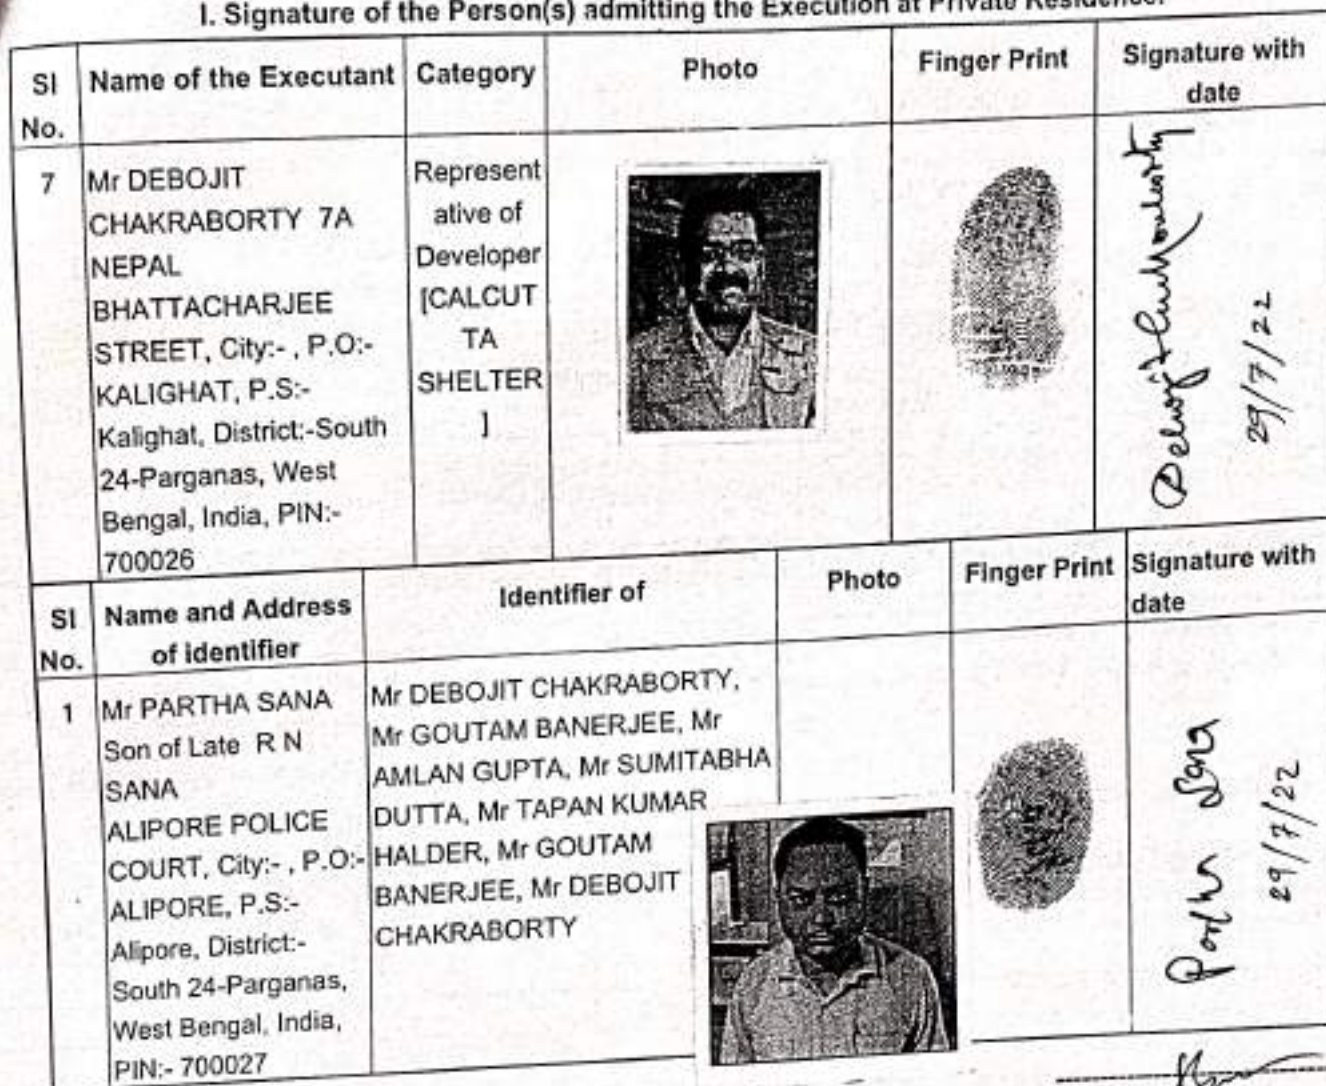 I. Signature of the Person(s) admitting the Execution at Private Residence.
Sl No.
Name of the Executant
Category
Photo
Finger Print
Signature with
date
7
Mr DEBOJIT
CHAKRABORTY 7A
NEPAL
BHATTACHARJEE
STREET, City:- , P.O:-
KALIGHAT, P.S:-
Kalighat, District:-South
24-Parganas, West
Bengal, India, PIN:-
700026
Represent
ative of
Developer
[CALCUT
TA
SHELTER
]
Debojit Chakraborty
29/7/22
Sl
No.
Name and Address
of identifier
Identifier of
Photo
Finger Print
Signature with
date
1
Mr PARTHA SANA
Son of Late R N
SANA
ALIPORE POLICE
COURT, City:- , P.O:-
ALIPORE, P.S:-
Alipore, District:-
South 24-Parganas,
West Bengal, India,
PIN:- 700027
Mr DEBOJIT CHAKRABORTY,
Mr GOUTAM BANERJEE, Mr
AMLAN GUPTA, Mr SUMITABHA
DUTTA, Mr TAPAN KUMAR
HALDER, Mr GOUTAM
BANERJEE, Mr DEBOJIT
CHAKRABORTY
Partha Sana
29/7/22